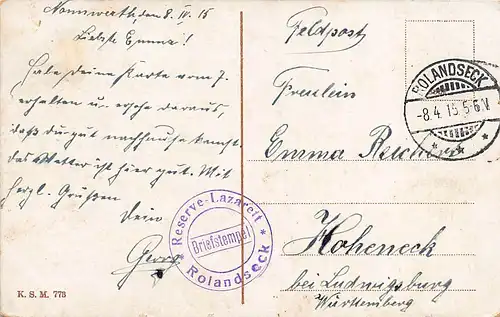 Nonnwerth, den 8. IV. 15
Liebste Emma!
Habe deine Karte vom 7.
erhalten u. ersehe daraus,
daß du gut nachhause kamst.
das Wetter ist hier gut. Mit
herzl. Grüßen
Dein
Georg
K. S. M. 773
Feldpost
Fräulein
Emma
Hoheneck
bei Ludwigsburg
Württemberg
ROLANDSECK
-8.4.15 5-6V
* Reserve-Lazarett *
Briefstempel
Rolandseck